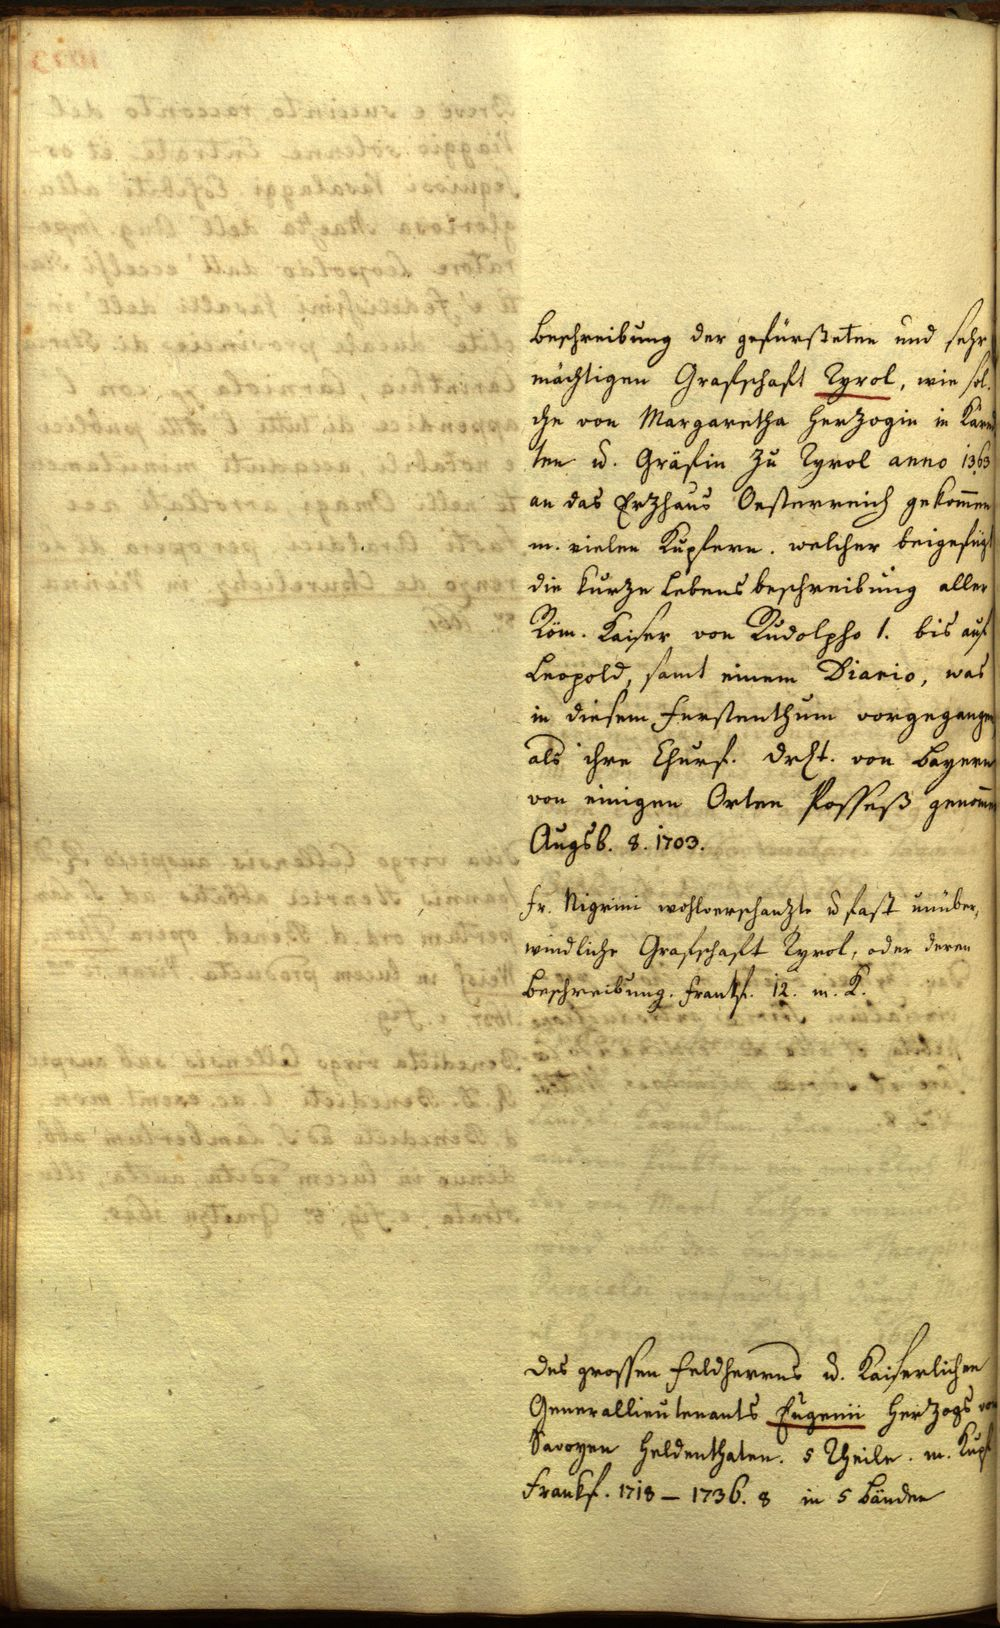 Beschreibung der gefürsteten und sehr
mächtigen Grafschaft Tyrol, wie sol-
che von Margaretha Herzogin in Kärnd
ten u. Gräfin zu Tyrol anno 1363
an das Erzhaus Oesterreich gekom̅en
m. vielen Kupfern. welcher beigefügt
die kurze Lebensbeschreibung aller
Röm. Kaiser von Rudolpho 1. bis auf
Leopold, samt einem Diario, was
in diesem Furstenthum vorgegangen
als ihre Churf. Drlt. von Bayern
von einigen Orten Possess genom̅en
Augsb. 8. 1703.
Fr. Nigrini wohlverschanzte u fast unüber,
windliche Grafschaft Tyrol, oder deren
Beschreibung. Frankf. 12. m. K.
Des grossen Feldherrns u. Kaiserlichen
Generallieutenants Eugenii Herzogs von
Savoyen Heldenthaten. 5 Theile. m. Kupf
Frankf. 1718 – 1736. 8 in 5 Bänden